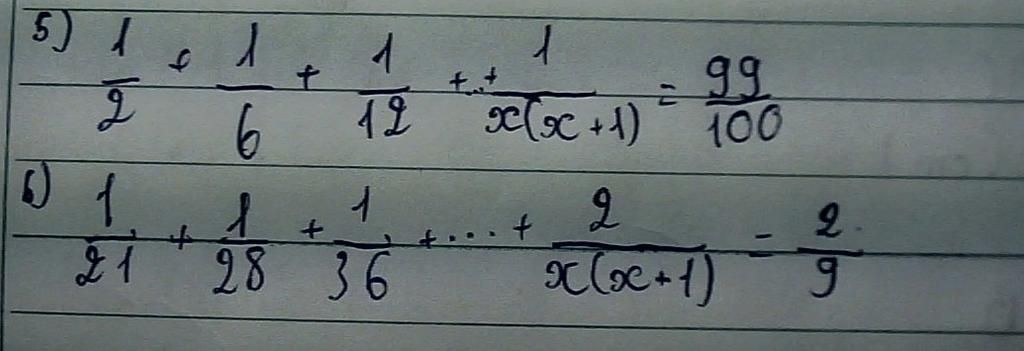 5) 1/2 + 1/6 + 1/12 + ... + 1/x(x+1) = 99/100
6) 1/21 + 1/28 + 1/36 + ... + 2/x(x+1) = 2/9